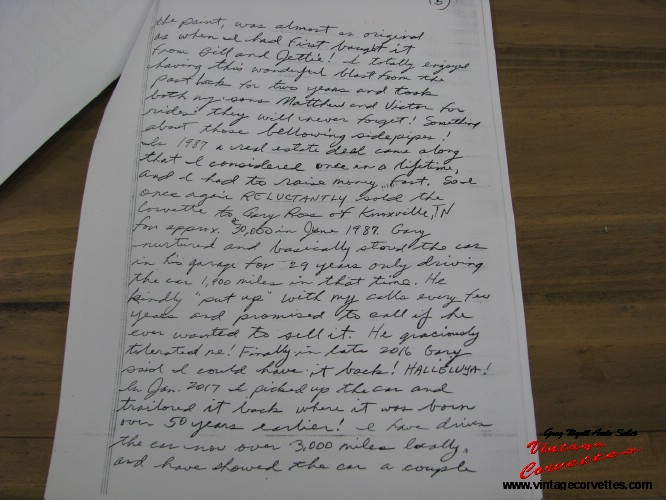 (5)
the paint, was almost as original
as when I had first bought it
from Bill and Jettie! I totally enjoyed
having this wonderful blast from the
past back for two years and took
both my sons Matthew and Victor for
rides they will never forget! Something
about those bellowing sidepipes!
In 1987 a real estate deal came along
that I considered once in a lifetime,
and I had to raise money fast. So I
once again RELUCTANTLY sold the
Corvette to Gary Ross of Knoxville, TN
for approx. $30,000 in June 1987. Gary
nurtured and basically stored the car
in his garage for 29 years only driving
the car 1,900 miles in that time. He
kindly "put up" with my calls every few
years and promised to call if he
ever wanted to sell it. He graciously
tolerated me! Finally in late 2016 Gary
said I could have it back! HALLELUYA!
In Jan. 2017 I picked up the car and
trailored it back where it was born
over 50 years earlier! I have driven
the car now over 3,000 miles locally,
and have showed the car a couple
Greg Wyatt Auto Sales
Vintage
Corvettes
www.vintagecorvettes.com